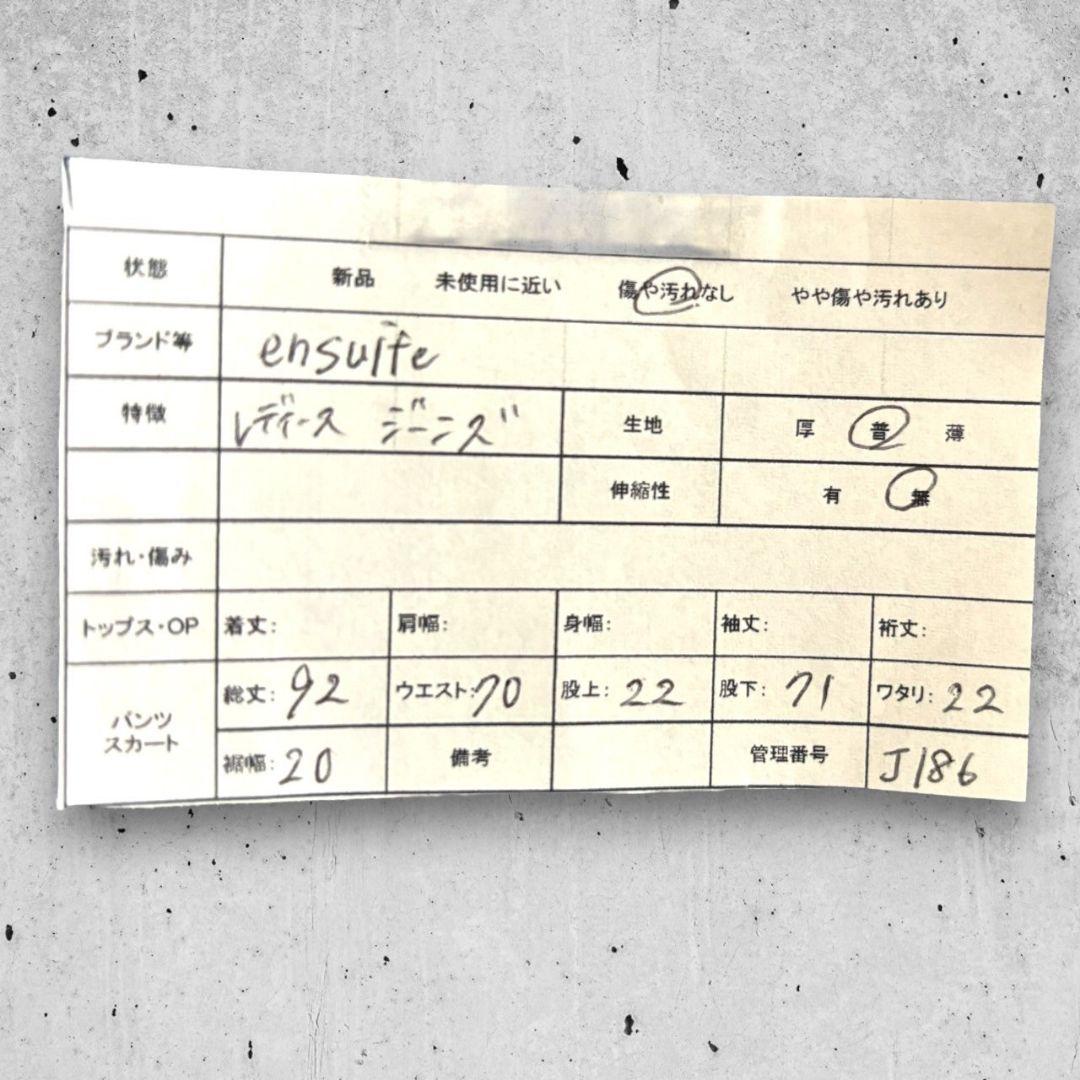 状態 新品 未使用に近い 傷や汚れなし やや傷や汚れあり
ブランド等 ensuite
特徴 レディース ジーンズ 生地 厚 普 薄
伸縮性 有 無
汚れ・傷み
トップス・OP 着丈: 肩幅: 身幅: 袖丈: 裄丈:
パンツ スカート 総丈: 92 ウエスト: 70 股上: 22 股下: 71 ワタリ: 22
裾幅: 20 備考 管理番号 J186